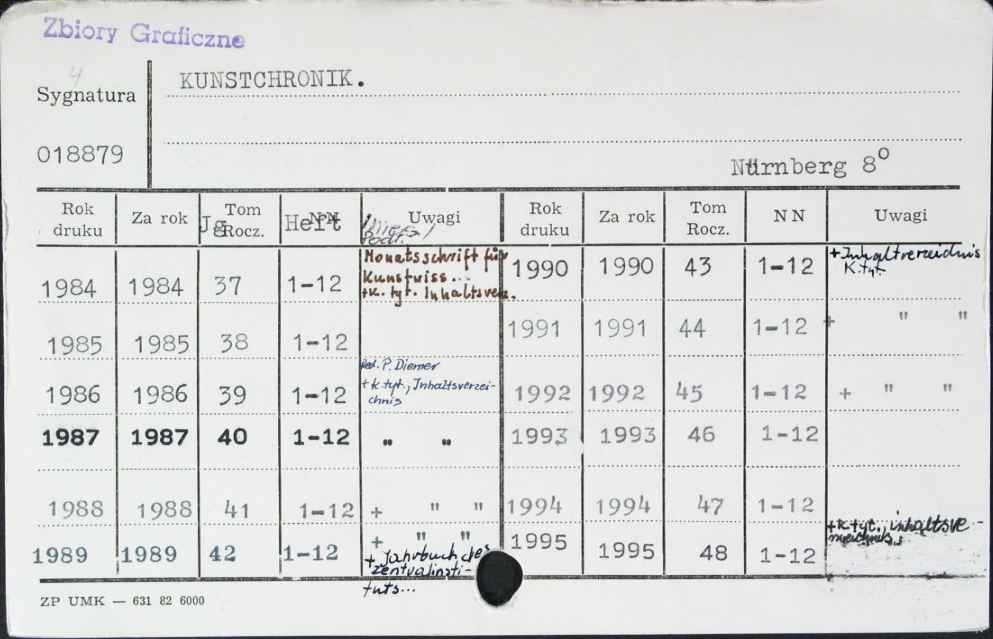 Zbiory Graficzne
4
Sygnatura
KUNSTCHRONIK.
018879
Nürnberg 8°
Rok druku Za rok Jg Tom Rocz. Heft NN Uwagi Rok druku Za rok Tom Rocz. NN Uwagi
1984 1984 37 1-12
Monatsschrift für
Kunstwiss...
+k. tyt. Inhaltsverz.
1985 1985 38 1-12
1986 1986 39 1-12
Red. P. Diemer
+ k. tyt., Inhaltsverzei-
chnis
1987 1987 40 1-12 " "
1988 1988 41 1-12 + " "
1989 1989 42 1-12 + " "
+ Jahrbuch des
Zentralinsti-
tuts...
1990 1990 43 1-12
+ Inhaltverzeidnis
K. tyt.
1991 1991 44 1-12 + " "
1992 1992 45 1-12 + " "
1993 1993 46 1-12
1994 1994 47 1-12
1995 1995 48 1-12
+k tyt., inhaltsve-
ZP UMK — 631 82 6000